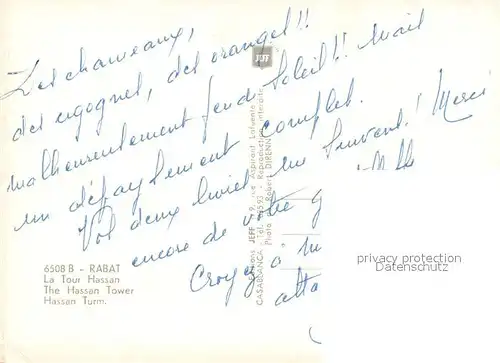 Des chameaux,
des cigognes, des oranges!!
malheureusement peu de Soleil!! Mais
un dépaysement complet.
Vos deux livres me suivent! Merci
encore de votre g
Croyez à m
atta
JEFF
Editions JEFF, 79, rue Aspirant Lafuente
CASABLANCA - Tél. 593 - Reproduction interdite
Photo Robert DIRENN
6508 B - RABAT
La Tour Hassan
The Hassan Tower
Hassan Turm.
privacy protection
Datenschutz